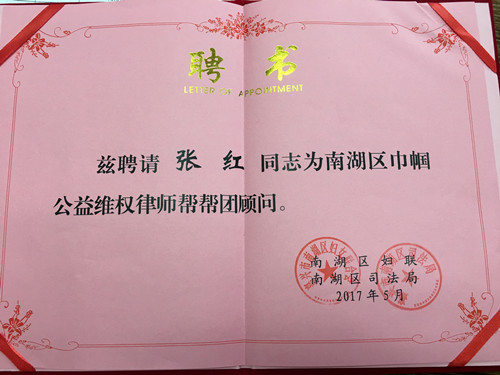 聘书
LETTER OF APPOINTMENT
兹聘请 张红 同志为南湖区巾帼
公益维权律师帮帮团顾问。
南湖区妇联
南湖区司法局
2017年5月